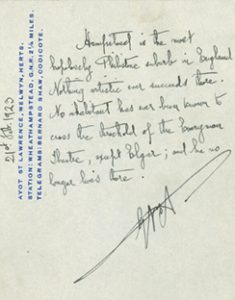 AYOT ST LAWRENCE, WELWYN, HERTS.
STATION: WHEATHAMPSTEAD, G.N.R. 2¼ MILES.
TELEGRAMS: BERNARD SHAW, CODICOTE.
21st 1920
Hampstead is the most
hopelessly Philistine suburb in England
Nothing artistic ever succeeds there.
No inhabitant has ever been known to
cross the threshold of the Everyman
Theatre, except Elgar; and he no
longer lives there.